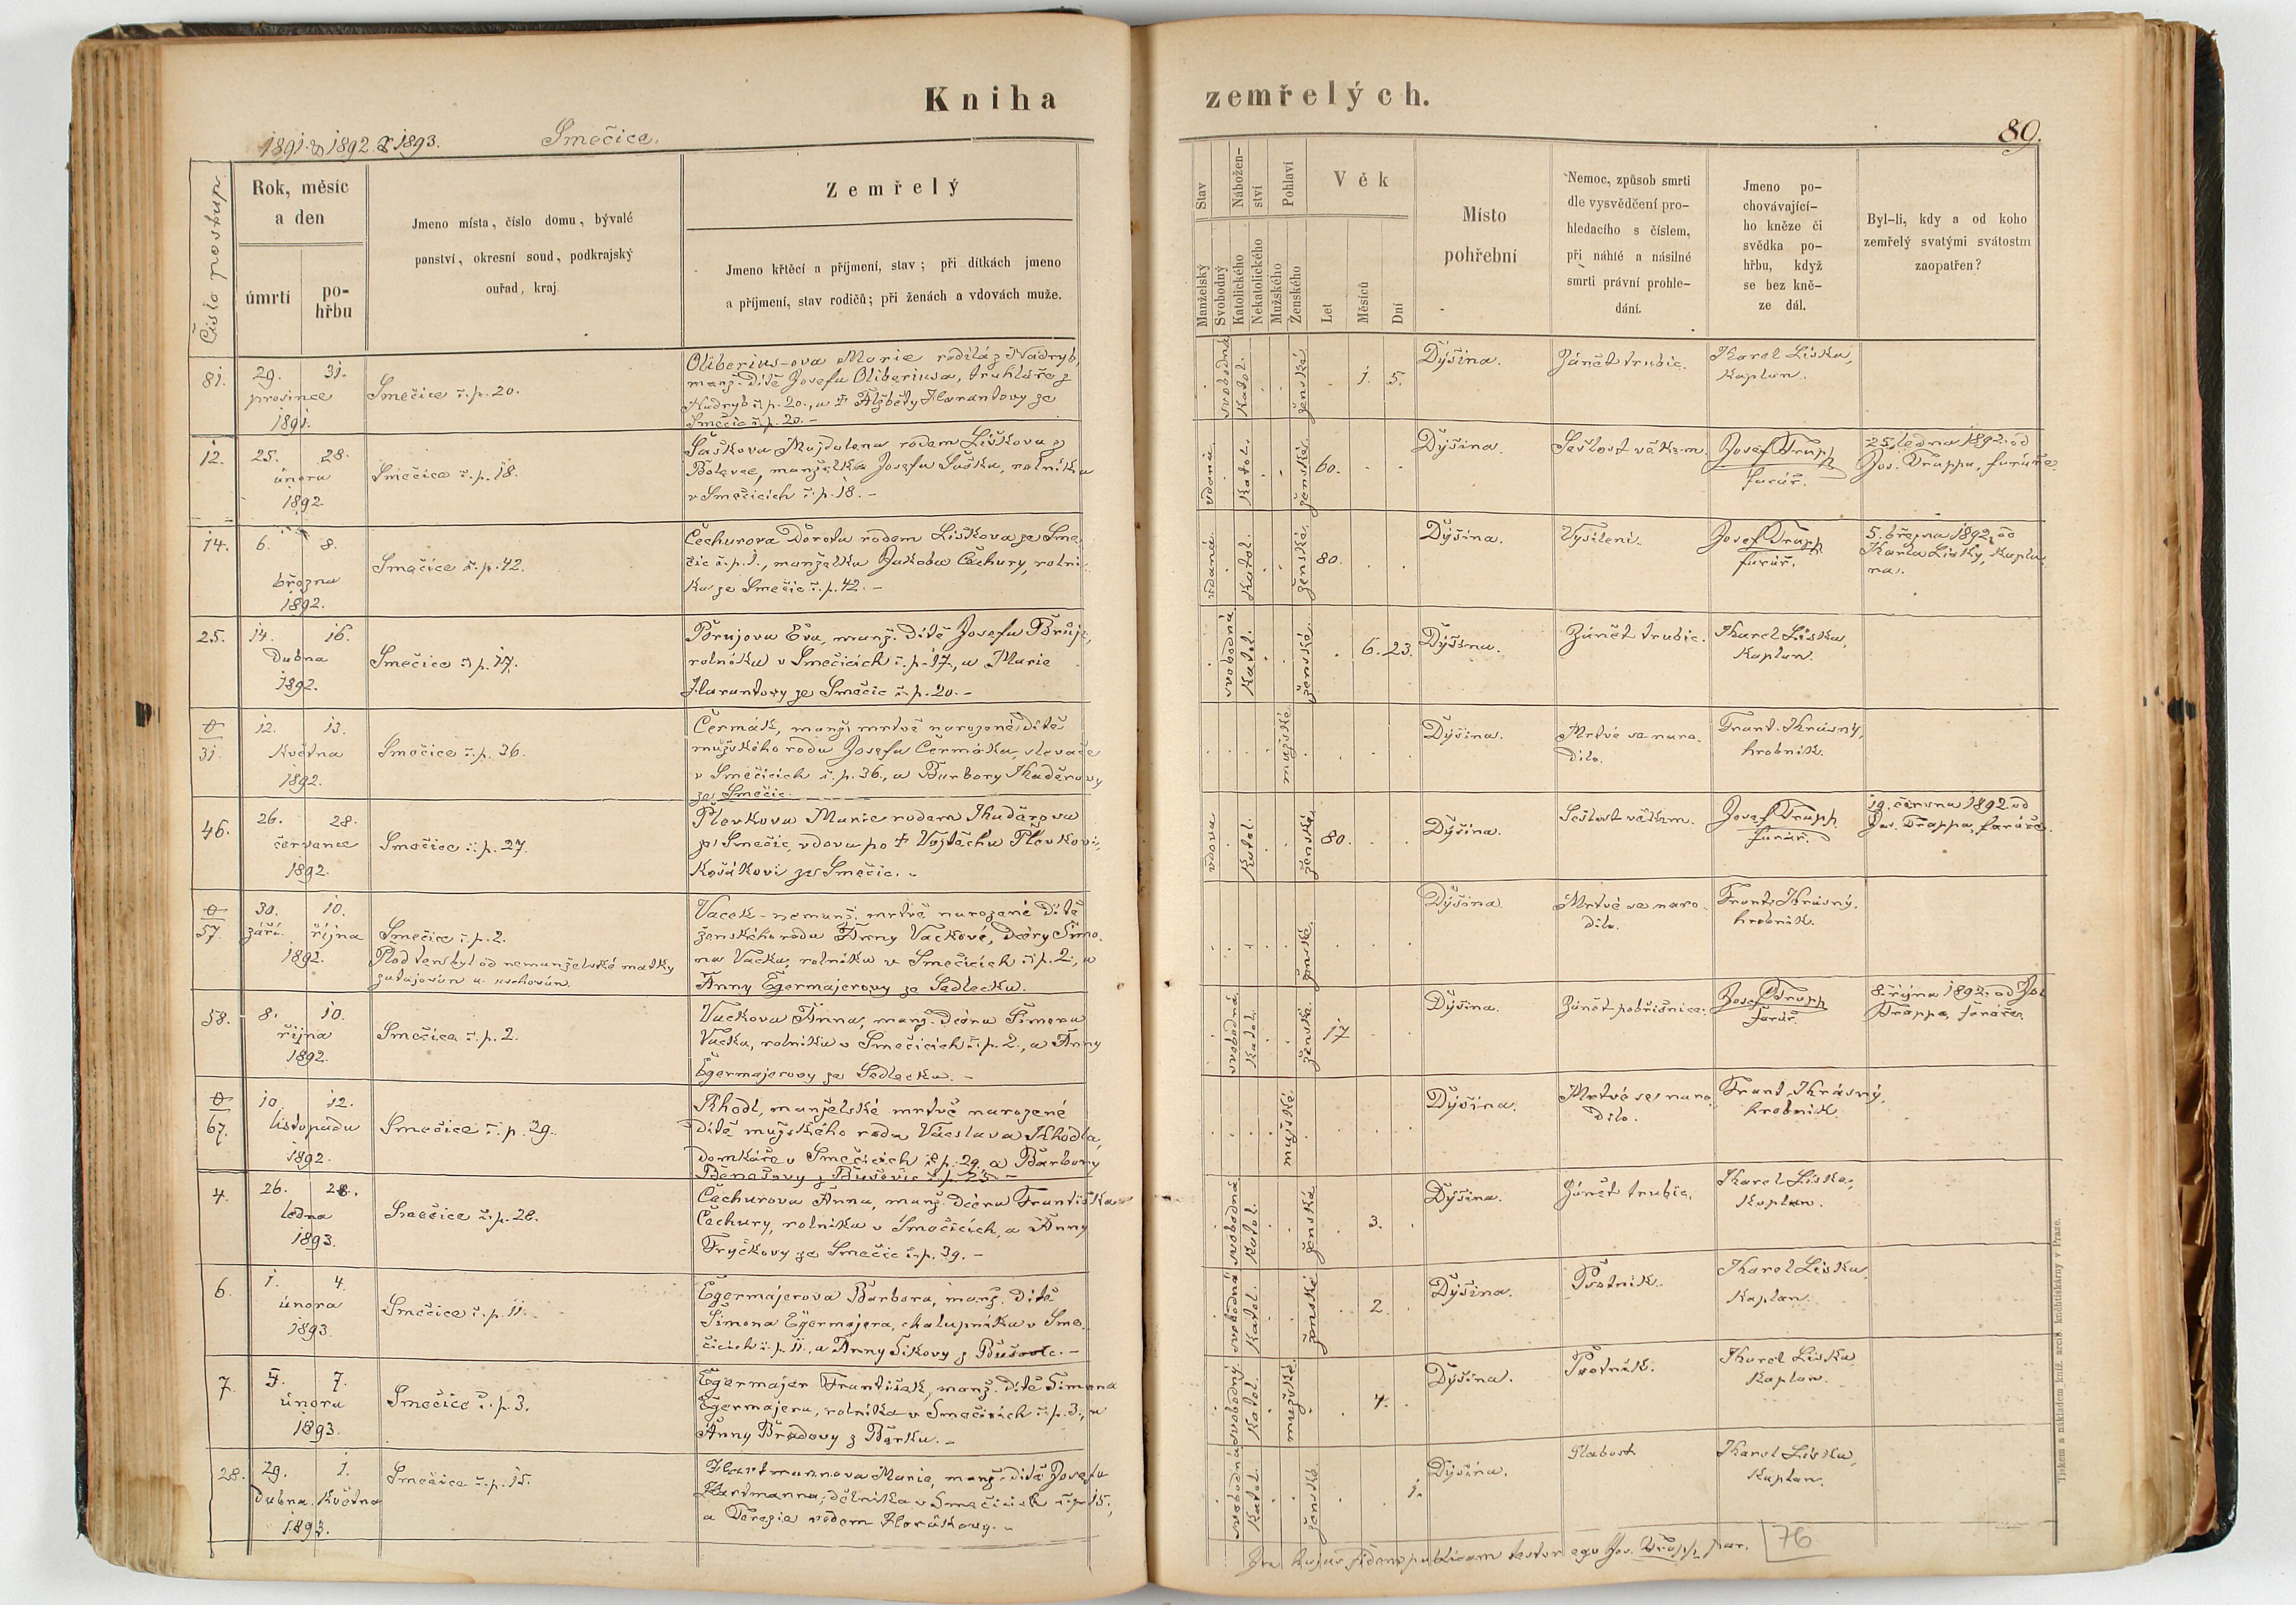 Kniha
zemřelých.
1891. & 1892. & 1893.
Smečice.
89.
Číslo postup.
Rok, měsíc
a den
úmrtí
po-
hřbu
Jmeno místa, číslo domu, bývalé
panství, okresní soud, podkrajský
ouřad, kraj
Zemřelý
Jmeno křtěcí a příjmení, stav; při dítkách jmeno
a příjmení, stav rodičů; při ženách a vdovách muže.
Stav
Manželský
Svobodný
Nábožen-
ství
Katolického
Nekatolického
Pohlaví
Mužského
Ženského
Věk
Let
Měsíců
Dní
Místo
pohřební
Nemoc, způsob smrti
dle vysvědčení pro-
hledacího s číslem,
při náhlé a násilné
smrti právní prohle-
dání.
Jmeno po-
chovávající-
ho kněze či
svědka po-
hřbu, když
se bez kně-
ze dál.
Byl-li, kdy a od koho
zemřelý svatými svátostmi
zaopatřen?
81.
29. 31.
prosince
1891.
Smečice č. p. 20.
Oliberius-ova Marie rodilá z Nadryb,
manž. dítě Josefa Oliberiusa, truhláře z
Nadryb č. p. 20., a † Alžběty Harantovy ze
Smečic č. p. 20. –
svobodná
Katol.
ženské
1. 5.
Dýšina.
Zánět trubic.
Karel Liška,
Kaplan.
12.
25. 28.
února
1892.
Smečice č. p. 18.
Šaškova Majdalena rodem Liškova z
Bolevce, manželka Josefa Šaška, rolníka
v Smečicích č. p. 18. –
vdaná
Katol.
ženské
60.
Dýšina.
Sešlost věkem.
Josef Trapp
farář.
25. ledna 1892. od
Jos. Trappa, faráře.
14.
6. 8.
března
1892.
Smečice č. p. 42.
Čechurova Dorota rodem Liškova ze Sme-
čic č. p. 1., manželka Jakoba Čechury, rolní-
ka ze Smečic č. p. 42. –
vdaná
Katol.
ženské
80.
Dýšina.
Vysílení.
Josef Trapp
farář.
5. března 1892, od
Karla Lišky, kapla-
na.
25.
14. 16.
Dubna
1892.
Smečice č. p. 17.
Brujova Eva, manž. dítě Josefa Brůje,
rolníka v Smečicích č. p. 17., a Marie
Harantovy ze Smečic č. p. 20. –
svobodná
Katol.
ženské
6. 23.
Dýšina.
Zánět trubic.
Karel Liška,
Kaplan.
31.
12. 13.
Května
1892.
Smečice č. p. 36.
Čermák, manž. mrtvě narozené dítě
mužského rodu Josefa Čermáka, slevače
v Smečicích č. p. 36., a Barbory Kaděrovy
ze Smečic.
mužské
Dýšina.
Mrtvé se naro-
dilo.
Frant. Krásný,
hrobník.
46.
26. 28.
července
1892.
Smečice č. p. 27.
Plevkova Marie rodem Kuděrova
ze Smečic, vdova po † Vojtěchu Plevkovi,
Košátkovi ze Smečic. –
vdova
Katol.
ženské
80.
Dýšina.
Sešlost věkem.
Josef Trapp
farář.
19. června 1892 od
Jos. Trappa, faráře.
57.
30. 10.
září. října
1892.
Smečice č. p. 2.
Plod ten byl od nemanželské matky
zatajován a uschován.
Vacek – nemanž. mrtvě narozené dítě
ženského rodu Anny Vackové, dcery Šimo-
na Vacka, rolníka v Smečicích č. p. 2., a
Anny Egermajerovy ze Sedlecka.
ženské
Dýšina.
Mrtvé se naro-
dilo.
Frant. Krásný,
hrobník.
58.
8. 10.
října
1892.
Smečice č. p. 2.
Vackova Anna, manž. dcera Šimona
Vacka, rolníka v Smečicích č. p. 2., a Anny
Egermajerovy ze Sedlecka. –
svobodná
Katol.
ženské.
17
Dýšina.
Zánět pobřišnice.
Josef Trapp
farář.
8. října 1892, od Jos.
Trappa, faráře.
67.
10. 12.
listopadu
1892.
Smečice č. p. 29.
Khodl, manželské mrtvě narozené
dítě mužského rodu Václava Khodla,
domkáře v Smečicích č. p. 29. a Barbory
Benešovy z Bušovic č. p. 25. –
mužské
Dýšina.
Mrtvé se naro-
dilo.
Frant. Krásný,
hrobník.
4.
26. 28.
ledna
1893.
Smečice č. p. 28.
Čechurova Anna, manž. dcera Františka
Čechury, rolníka v Smečicích, a Anny
Fryčkovy ze Smečic č. p. 39. –
svobodná
Katol.
ženská
3.
Dýšina.
Zánět trubic.
Karel Liška,
Kaplan.
6.
1. 4.
února
1893.
Smečice č. p. 11.
Egermajerova Barbora, manž. dítě
Šimona Egermajera, chalupníka v Sme-
čicích č. p. 11., a Anny Sikovy z Bušovic. –
svobodná
Katol.
ženské
2.
Dýšina.
Psotník.
Karel Liška,
Kaplan.
7.
5. 7.
února
1893.
Smečice č. p. 3.
Egermajer František, manž. dítě Šimona
Egermajera, rolníka v Smečicích č. p. 3., a
Anny Bradovy z Borku. –
svobodný
Katol.
mužské.
4.
Dýšina.
Psotník.
Karel Liška
Kaplan.
28.
29. 1.
dubna. Května
1893.
Smečice č. p. 15.
Hartmannova Marie, manž. dítě Josefa
Hartmanna, dělníka v Smečicích č. p. 15.,
a Terezie rodem Horákovy. –
svobodná
Katol.
ženské.
1.
Dýšina.
Slabost
Karel Liška,
Kaplan.
hujus fidem publicam testor ego Jos. Trapp, par.
76
Tiskem a nákladem kníž. arcib. knihtiskárny v Praze.